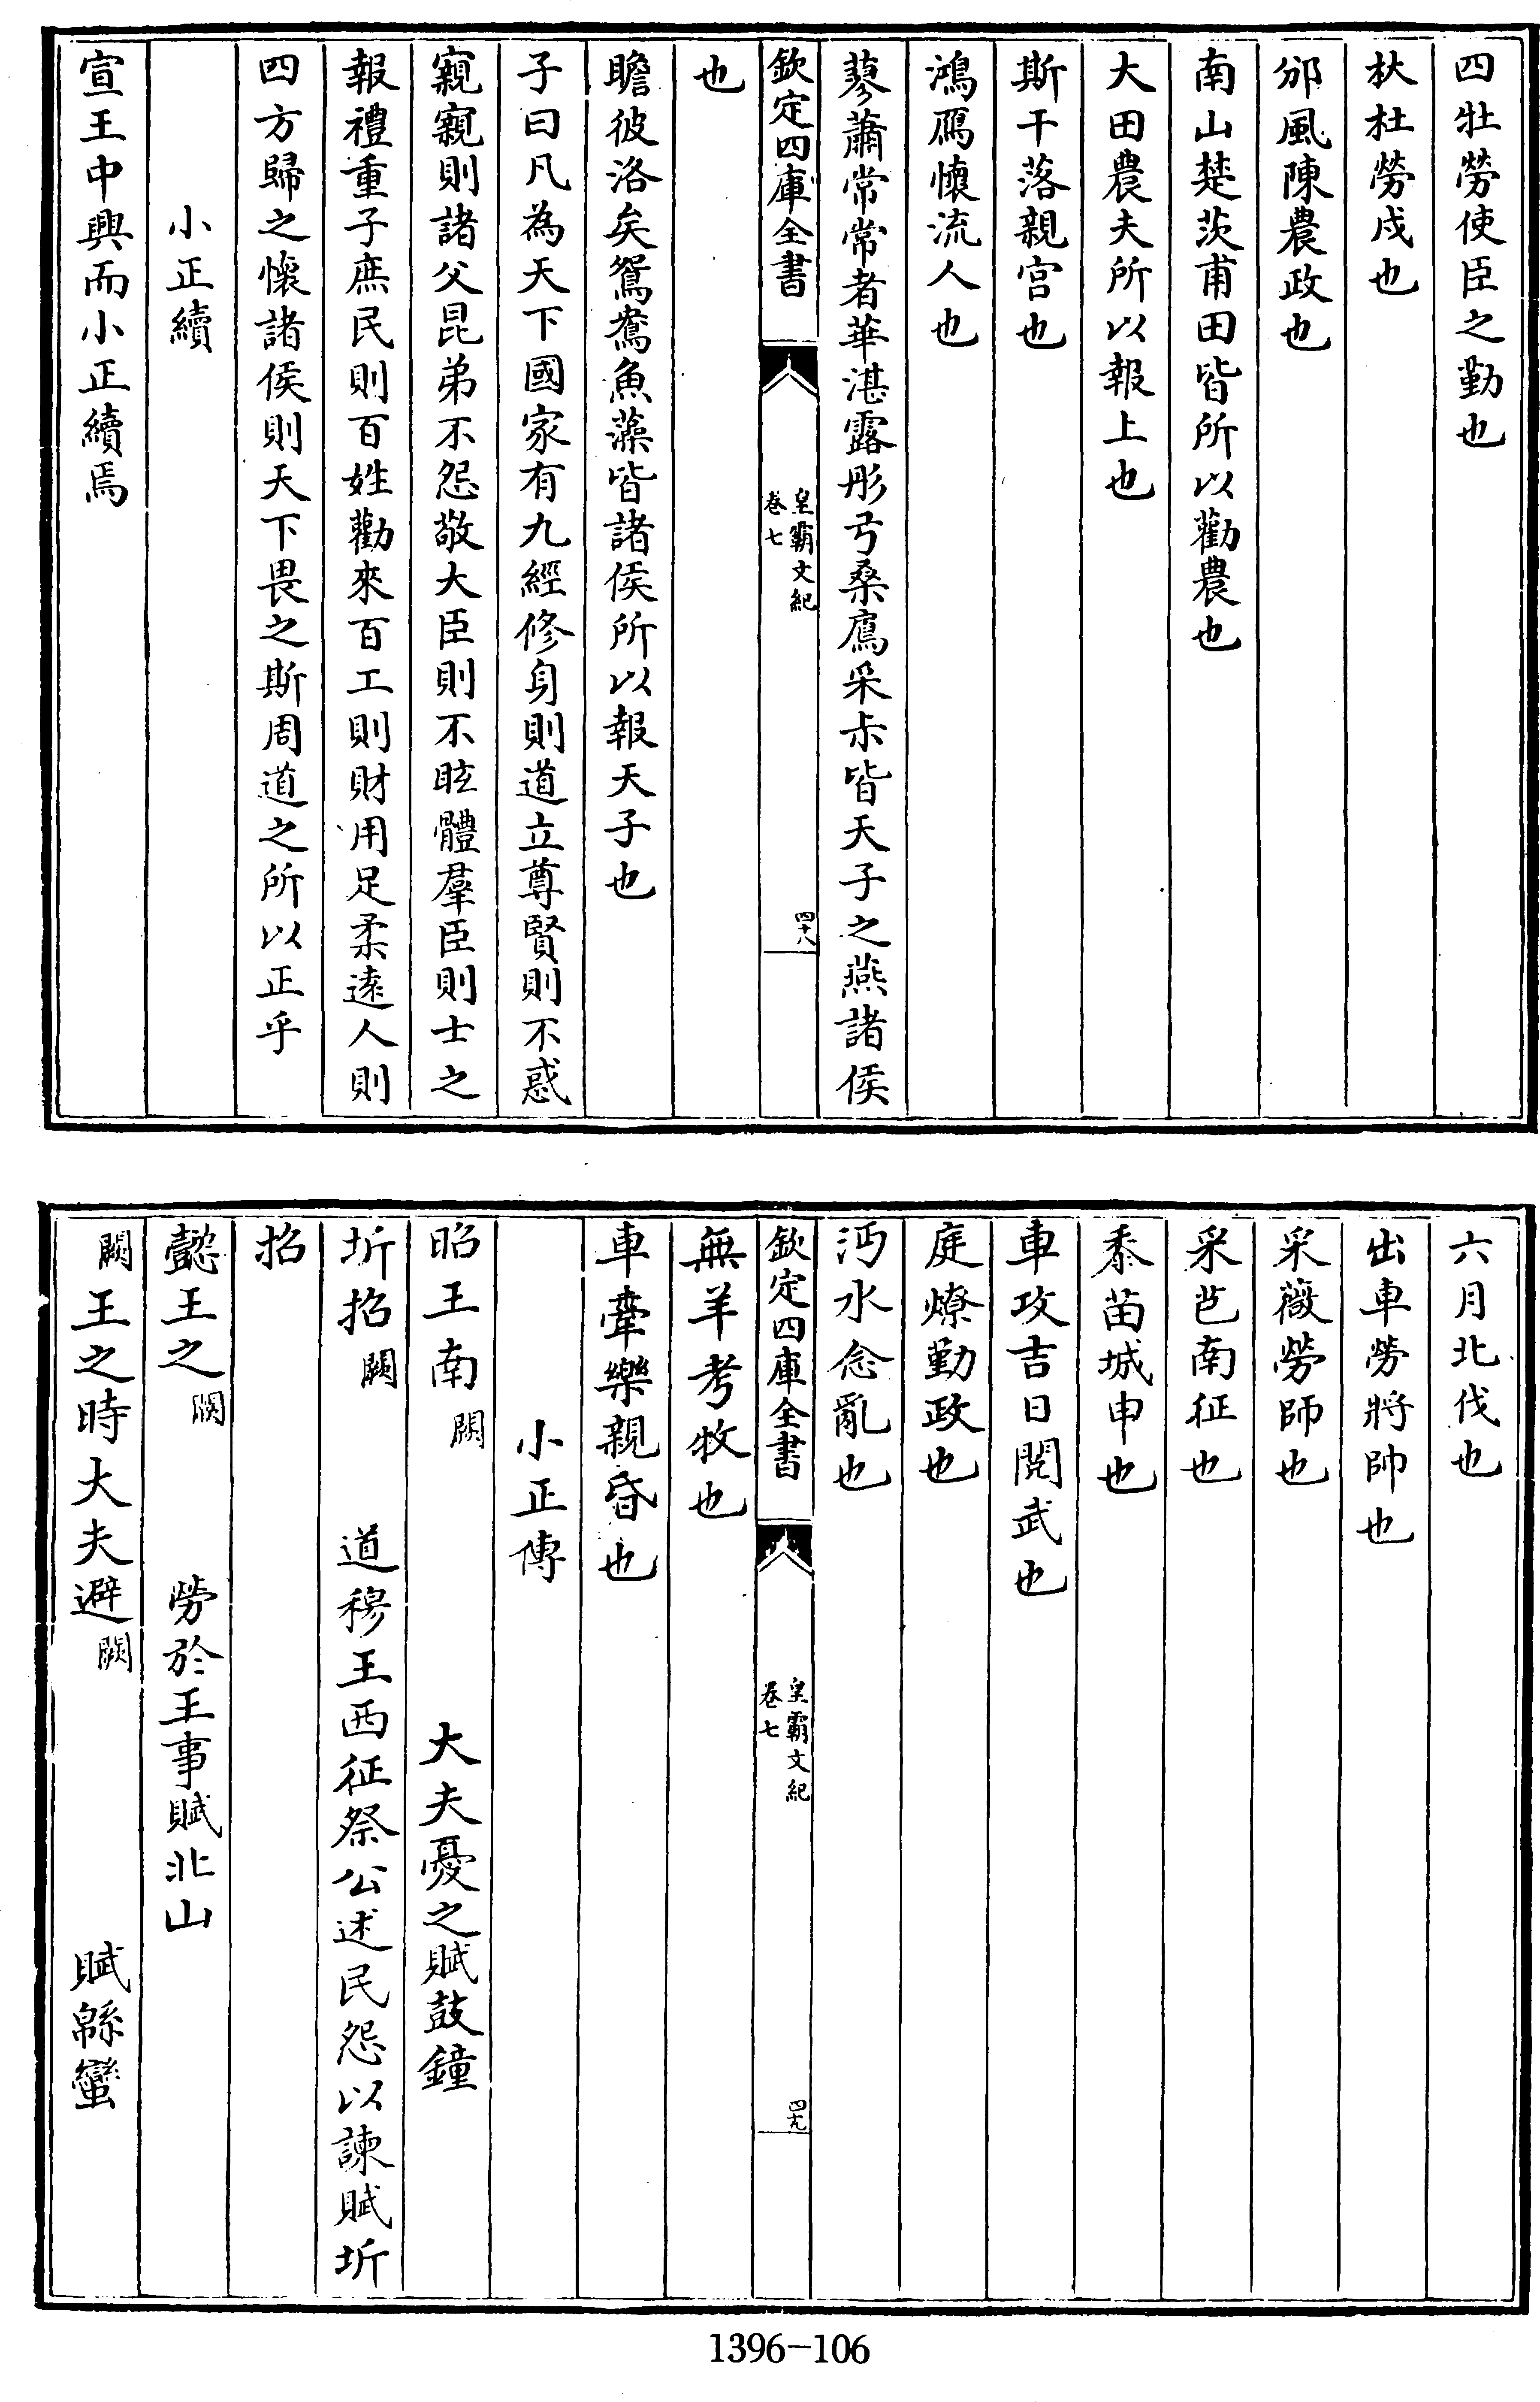 四牡勞使臣之勤也
杕杜勞戍也
邠風陳農政也
南山楚茨甫田皆所以勸農也
大田農夫所以報上也
斯干落親宫也
鴻鴈懷流人也
蓼蕭常常者華湛露彤弓桑鳸采尗皆天子之燕諸侯
欽定四庫全書
皇霸文紀
卷七
四十八
也
瞻彼洛矣鴛鴦魚藻皆諸侯所以報天子也
子曰凡為天下國家有九經修身則道立尊賢則不惑
親親則諸父昆弟不怨敬大臣則不眩體羣臣則士之
報禮重子庶民則百姓勸來百工則財用足柔逺人則
四方歸之懷諸侯則天下畏之斯周道之所以正乎
小正續
宣王中興而小正續焉
六月北伐也
出車勞將帥也
采薇勞師也
采芑南征也
黍苗城申也
車攻吉日閱武也
庭燎勤政也
沔水念亂也
欽定四庫全書
皇霸文紀
卷七
四十九
無羊考牧也
車舝樂親昏也
小正傳
昭王南闕 大夫憂之賦鼓鐘
圻招闕 道穆王西征祭公述民怨以諫賦圻
招
懿王之闕 勞於王事賦北山
闕王之時大夫避闕 賦緜蠻
1396-106